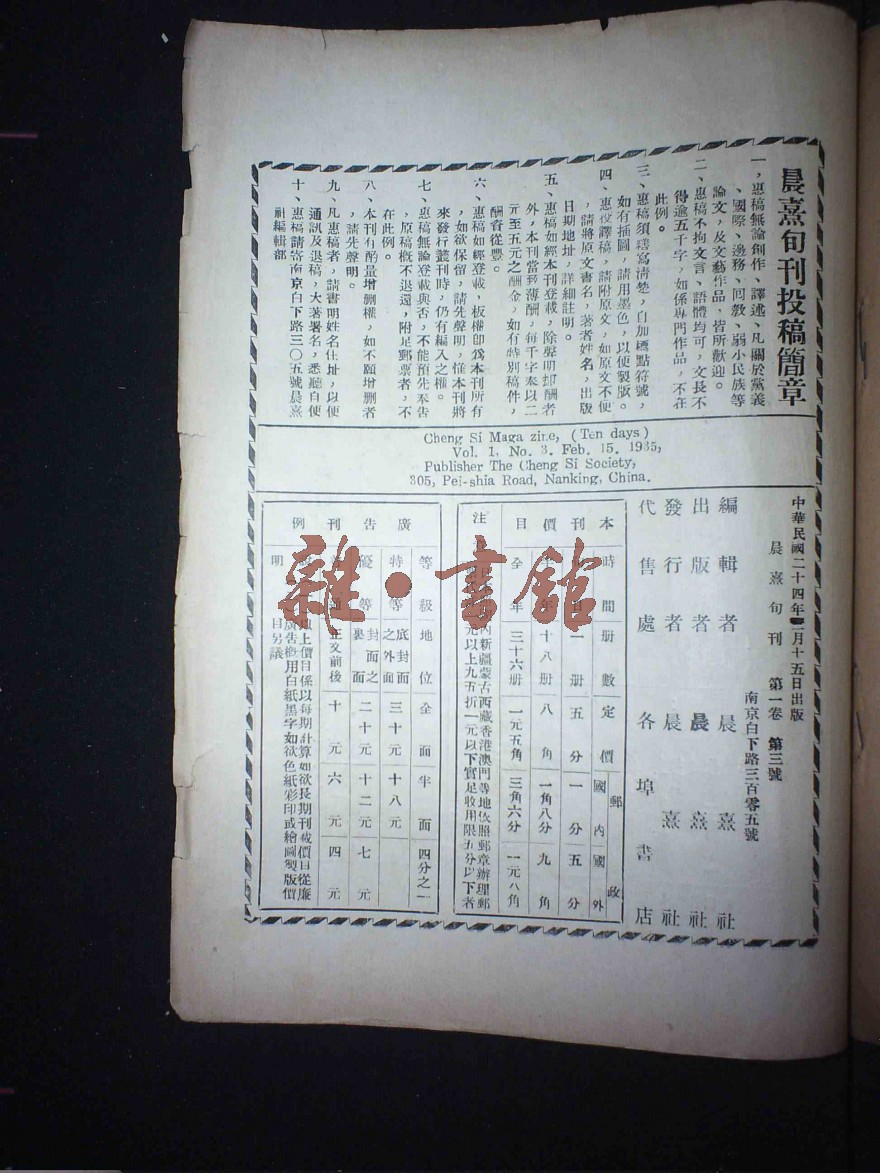 晨熹旬刊投稿簡章
一，惠稿無論創作、譯述、凡關於黨義
、國際、邊務、回敎、弱小民族等
論文，及文藝作品，皆所歡迎。
二、惠稿不拘文言、語體均可，文長不
得逾五千字，如係專門作品，不在
此例。
三、惠稿須繕寫清楚，自加標點符號，
如有插圖，請用墨色，以便製版。
四、惠投譯稿，請附原文，如原文不便
，請將原文書名，著者姓名，出版
日期地址，詳細註明。
五、惠稿如經本刊登載，除聲明却酬者
外，本刊當致薄酬，每千字奉以二
元至五元之酬金，如有特別稿件，
酬資從豐。
六、惠稿如經登載，板權即爲本刊所有
，如欲保留，請先聲明，惟本刊將
來發行叢刊時，仍有編入之權。
七、惠稿無論登載與否，不能預先奉告
，原稿概不退還，附足郵票者，不
在此例。
八、本刊有酌量增刪權，如不願增刪者
，請先聲明。
九、凡惠稿者，請書明姓名住址，以便
通訊及退稿，大著署名，悉聽自便
十、惠稿請寄南京白下路三〇五號晨熹
社編輯部
Cheng Si Maga zine, (Ten days)
Vol. 1, No. 3. Feb. 15. 1935,
Publisher The Cheng Si Society,
305, Pei-shia Road, Nanking, China.
中華民國二十四年二月十五日出版
晨熹旬刊 第一卷 第三號
南京白下路三百零五號
編輯者 晨熹社
出版者 晨熹社
發行者 晨熹社
代售處 各埠書店
本刊價目
時間 册數 定價 郵政 國內 國外
一册 五分 一分 五分
十八册 八角 一角八分 九角
全年 三十六册 一元五角 三角六分 一元八角
注
內新疆蒙古西藏香港澳門等地依照郵章辦理郵
元以上九五折一元以下實足收用限五分以下者
廣告刊例
等級 地位 全面 半面 四分之一
特等 底封面之外面 三十元 十八元
優等 封面之裏面 二十元 十二元 七元
正文前後 十元 六元 四元
明
以上價目係以每期計算如欲長期刊載價目從廉
廣告概用白紙黑字如欲色紙彩印或繪圖製版價
目另議
雜·書館